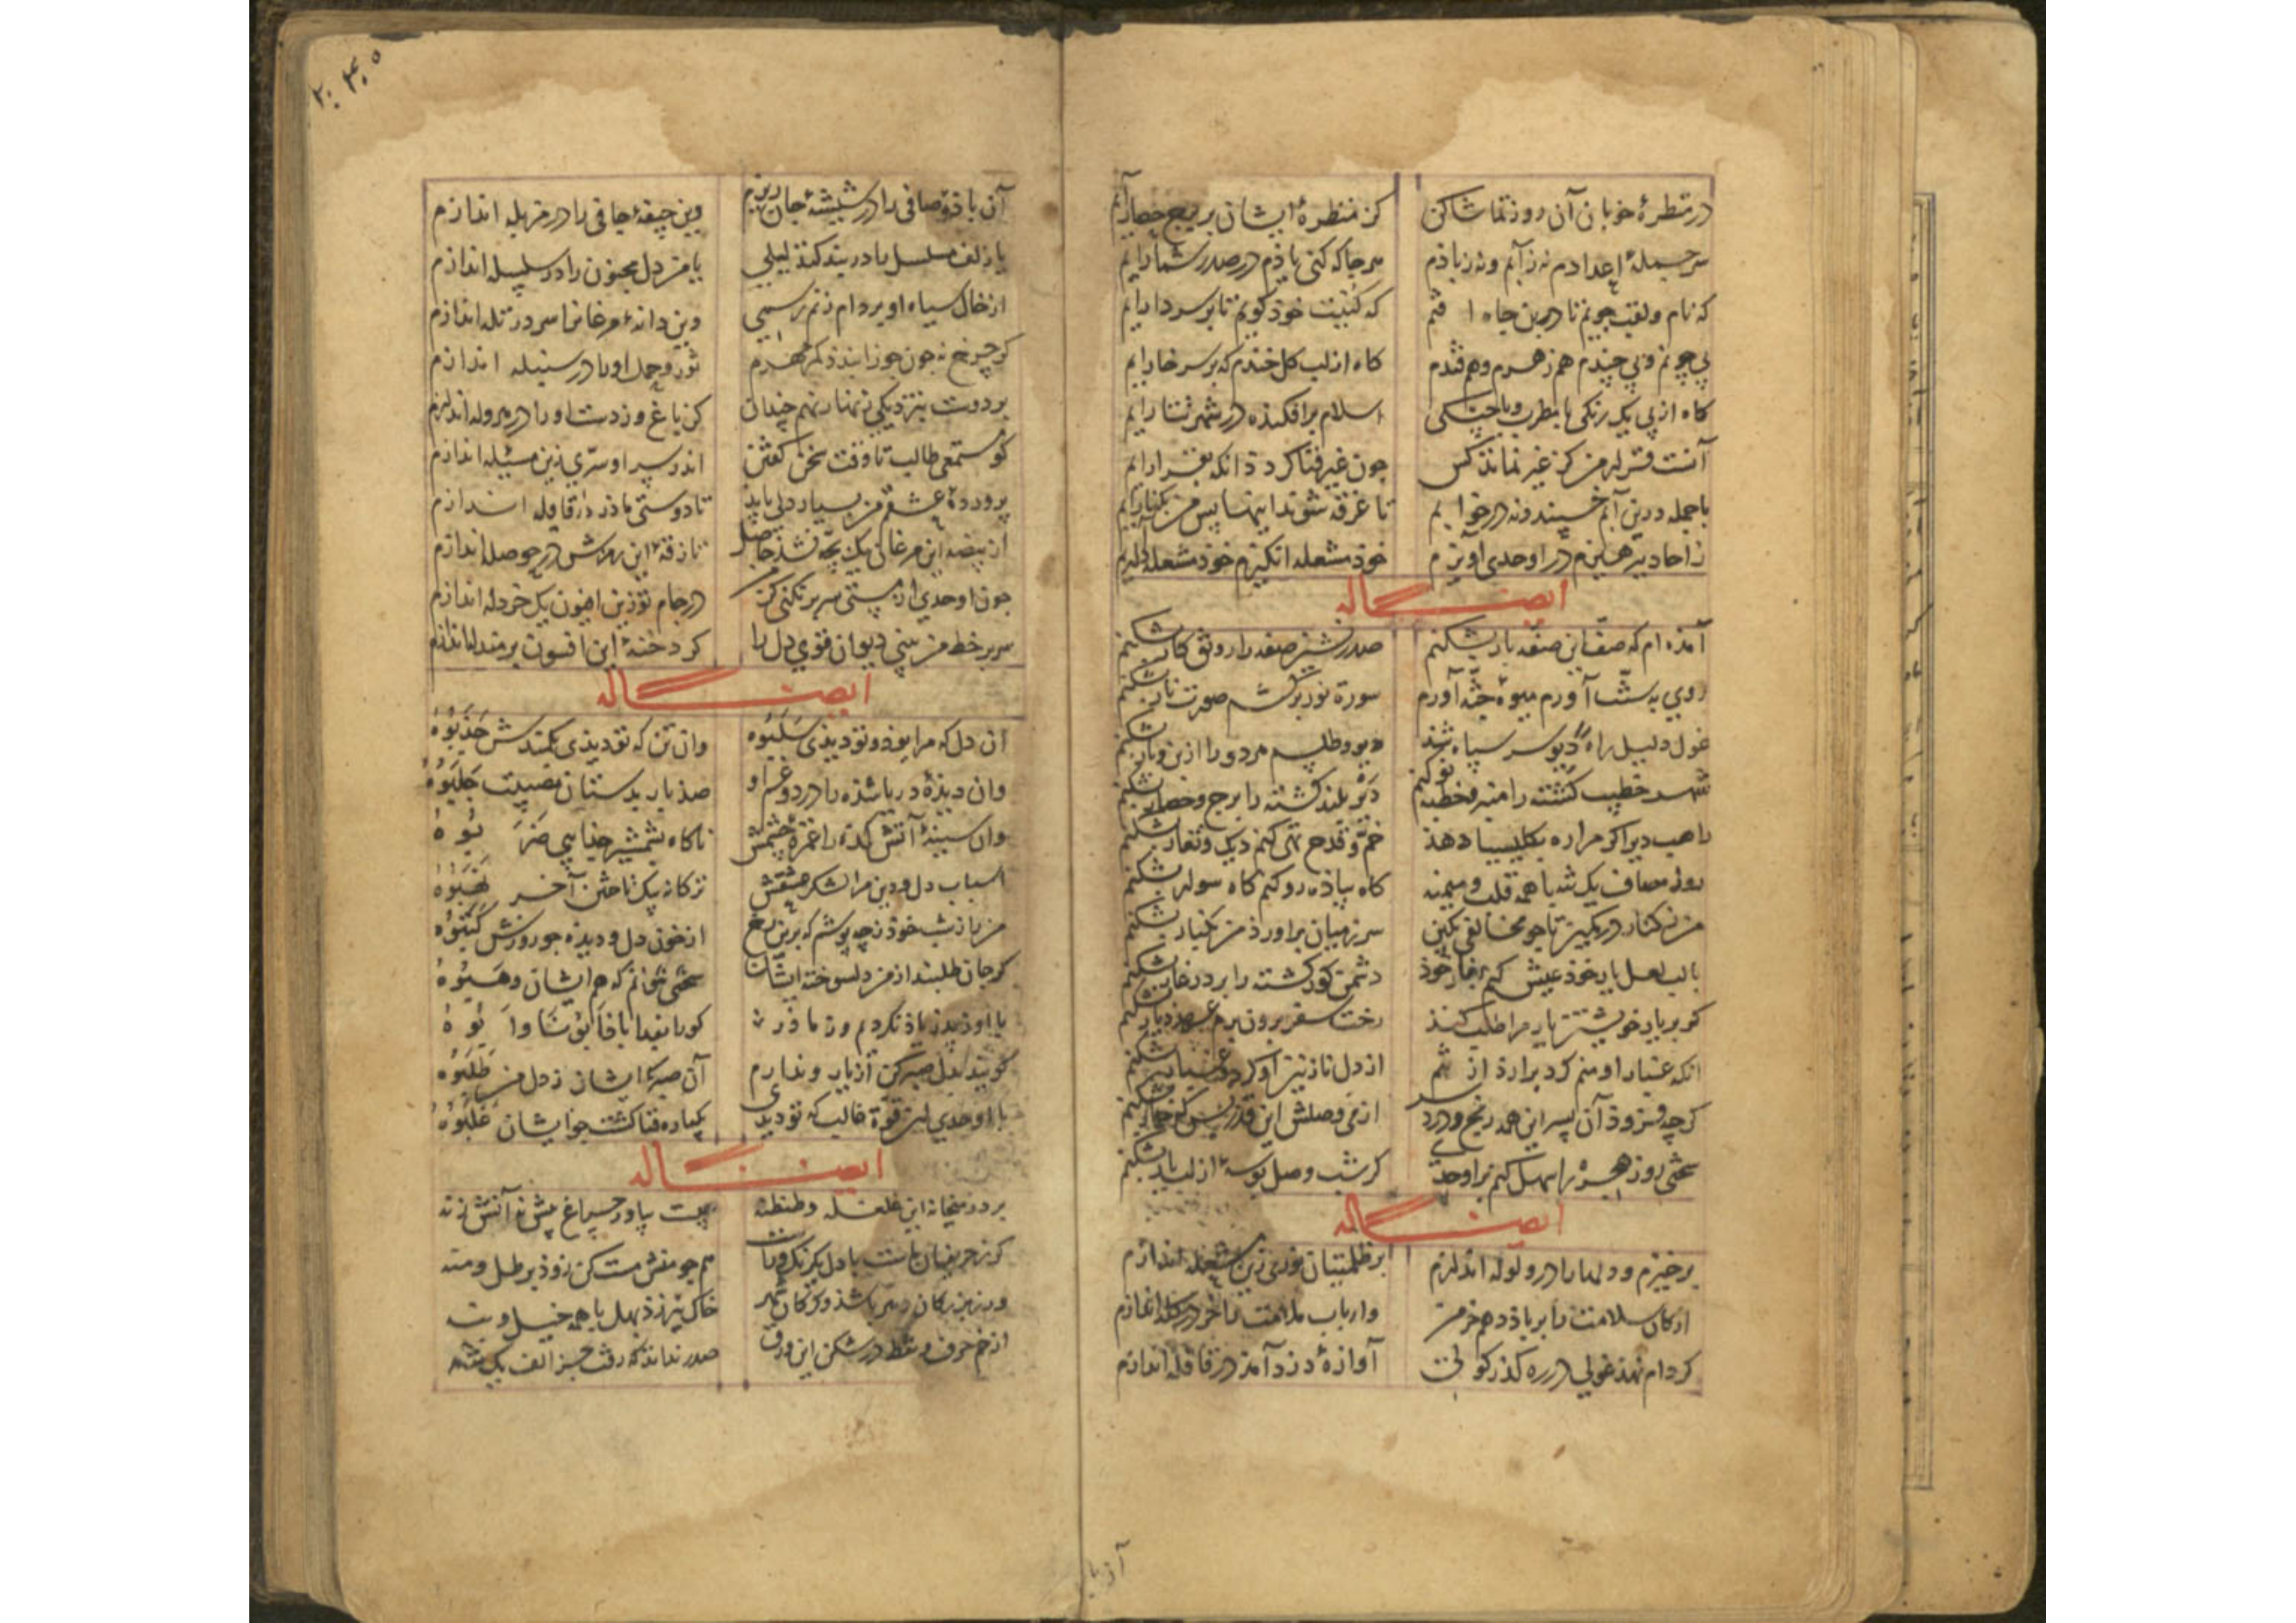 در منظرهٔ خوبان آن روز تماشا کن
کز منظرهٔ ایشان بر برج حصار آیم
سرجملهٔ اعدادم نه زآنم و نه زیاذم
هرجا که کنی یاذم در صدر شمار آیم
که نام و لقب جویم تا در بن چاه افتم
که کنیت خوذ گویم تا بر سر دار آیم
بی چونم و بی چندم هم زهرم و هم قندم
گاه از لب گل خندم گه بر سر خار آیم
گاه از پی یک رنگی با مطرب و با چنگی
اسلام برافکنده در شهر تتار آیم
آنست قرار من کز غیر نماند کس
چون غیر فنا گردد آنگه بقرار آیم
با جمله درین آبم خسبند و نه در خوابم
تا غرقه شوند اینها پس من بکنار آیم
زاحاد بپرهیزم در اوحدی آویزم
خوذ مشعله انگیزم خوذ مشعله دار آیم
ایضاً له
آمذه‌ام که صف این صفهٔ بار بشکنم
صدرنشین صفه را رونق کار بشکنم
روی به سنت آورم میوهٔ جنة آورم
سورة نور برکشم صورت نار بشکنم
غول دلیل راه شذ دیو سر سپاه شذ
دیو و طلسم هر دو را ازین و یار بشکنم
شهر خطیب کشته را منبر و خطبه نو کنم
دیر بلند گشته را برج و حصار بشکنم
راهب دیر اگر مرا ره بکلیسیا دهذ
خم و قدح تهی کنم دیک و تغار بشکنم
روز مصاف یک تنه با همه قلب و میمنه
گاه پیاذه رو کنم گاه سوار بشکنم
من ز کنار در کمین تا چو مخالفی بکین
سر ز میان برآورذ من بکنار بشکنم
با لب لعل یار خوذ عیش کنم بغار خوذ
دشمن کور گشته را بر در غار بشکنم
گر بر یار خویشتن یار مرا طلب کنذ
رخت سفر برون برم عهد دیار بشکنم
آنکه غبار او منم گرد برآرد از تنم
از دل نازنین او گرد و غبار بشکنم
گرچه فزوذ آن پسر این همه رنج و درد سر
از می وصلش این قدر بس که خمار بشکنم
سختی روز هجر را سهل کنم بر اوحدی
گر شب وصل بوسهٔ از لب یار بشکنم
ایضاً له
برخیزم و دلها را در ولوله اندازم
بر ظلمتیان نوری زین مشعله اندازم
ارکان سلامت را بر باذ دهم خرمن
وارباب ملامت را خر در گله اندازم
گر دام نهذ غولی در ره گذر گولی
آوازهٔ دزد آمذ در قافله اندازم
آن باذهٔ صافی را در شیشهٔ جان ریزم
وین جیفهٔ جافی را در مزبله اندازم
یا زلف مسلسل را دربند کنذ لیلی
یا من دل مجنون را در سلسله اندازم
از خال سیاه او بر دام زنم رسمی
وین دانهٔ مرغان را سر در تله اندازم
گر چرخ نه چون جوزا بندذ کمر مهرم
ثور و حمل او را در سنبله اندازم
بر دوست بنزدیکی تنها نهم چندان
کز باغ و ز دشت او را در هروله اندازم
کو مستمعی طالب تا وقت سخن گفتن
اندر سر او سری زین مسئله اندازم
پروردهٔ عشقم من بسیار دلی بایذ
تا دوستی ماذر در قافله اندازم
از بیضهٔ این مرغان یک بچه نشذ حاصل
تا زقهٔ این زهرش در حوصله اندازم
چون اوحدی از مستی سر بر نکنی گر من
در جام تو زین افیون یک خردله اندازم
سر بر خط من بینی دیوان قوی دل را
گر دخنهٔ این افسون بر مندله اندازم
ایضاً له
آن دل که مرا بوذ و تو دیذی سلبوه
وان تن که تو دیذی بکمندش جذبوه
وان دیذهٔ دریا شذه را در دو غم او
صذ بار بدستان مصیبت حلبوه
وان سینهٔ آتشکده را غمزهٔ چشمش
ناگاه بشمشیر جفا پی ضربوه
اسباب دل و دین مرا لشکر عشقش
ترکانه بیک تاختن آخر نهبوه
من راز شب خوذ ز چه پوشم که برین رخ
از خون دل و دیذه چو روزش کتبوه
گر جان طلبند از من دلسوخته ایشان
سختی نتوانم که هم ایشان وهبوه
با او ز پدر یاذ نکردم و ز ماذر
کورا بفدا باذ ابونا وابوه
گویند بدل صبر کن از یار و ندارم
آن صبر که ایشان ز دل من طلبوه
با اوحدی آن قوة غالب که تو دیدی
یکباره فنا گشت چو ایشان غلبوه
ایضاً له
بر در میخانه این غلغله و طنطنه
چیست بیاور چراغ پیش نه آتش زنه
گر ز حریفان ماست با دل یکرنگ و راست
هم چو منش مست کن زوذ برطل و منه
ور ز بزرگان شهر باشذ و ترکان قهر
خاک نیرزذ بهل با همه خیل و بنه
از خم حرف و نقط در شکن این ورق
صدر نداند که رفت جز الف یک تنه